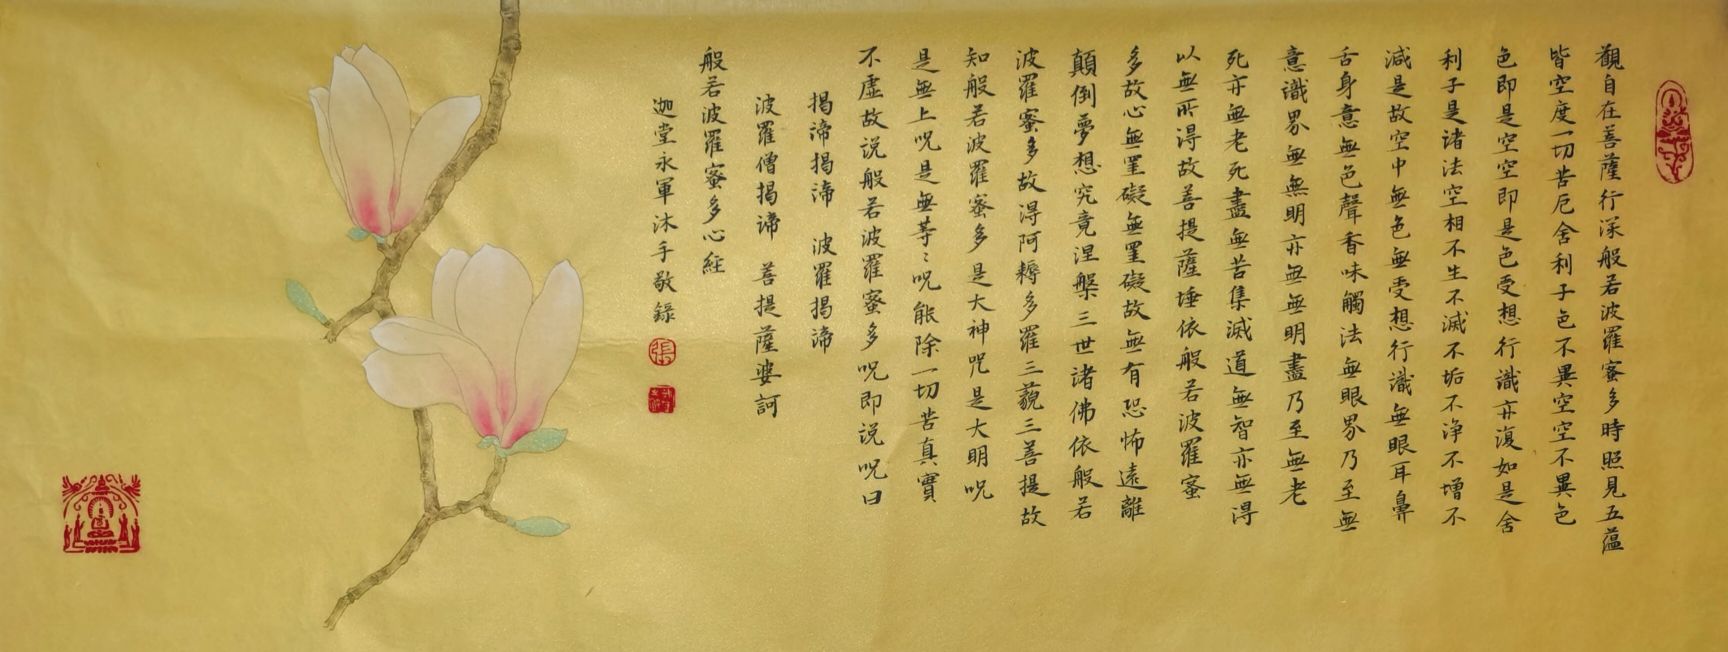 觀自在菩薩行深般若波羅蜜多時照見五蘊
皆空度一切苦厄舍利子色不異空空不異色
色即是空空即是色受想行識亦復如是舍
利子是諸法空相不生不滅不垢不净不增不
減是故空中無色無受想行識無眼耳鼻
舌身意無色聲香味觸法無眼界乃至無
意識界無無明亦無無明盡乃至無老
死亦無老死盡無苦集滅道無智亦無得
以無所得故菩提薩埵依般若波羅蜜
多故心無罣礙無罣礙故無有恐怖遠離
顛倒夢想究竟涅槃三世諸佛依般若
波羅蜜多故得阿耨多羅三藐三菩提故
知般若波羅蜜多是大神咒是大明呪
是無上呪是無等〻呪能除一切苦真實
不虛故说般若波羅蜜多呪即说呪曰
揭諦揭諦 波羅揭諦
波羅僧揭諦 菩提薩婆訶
般若波羅蜜多心経
迦堂永軍沐手敬錄
張